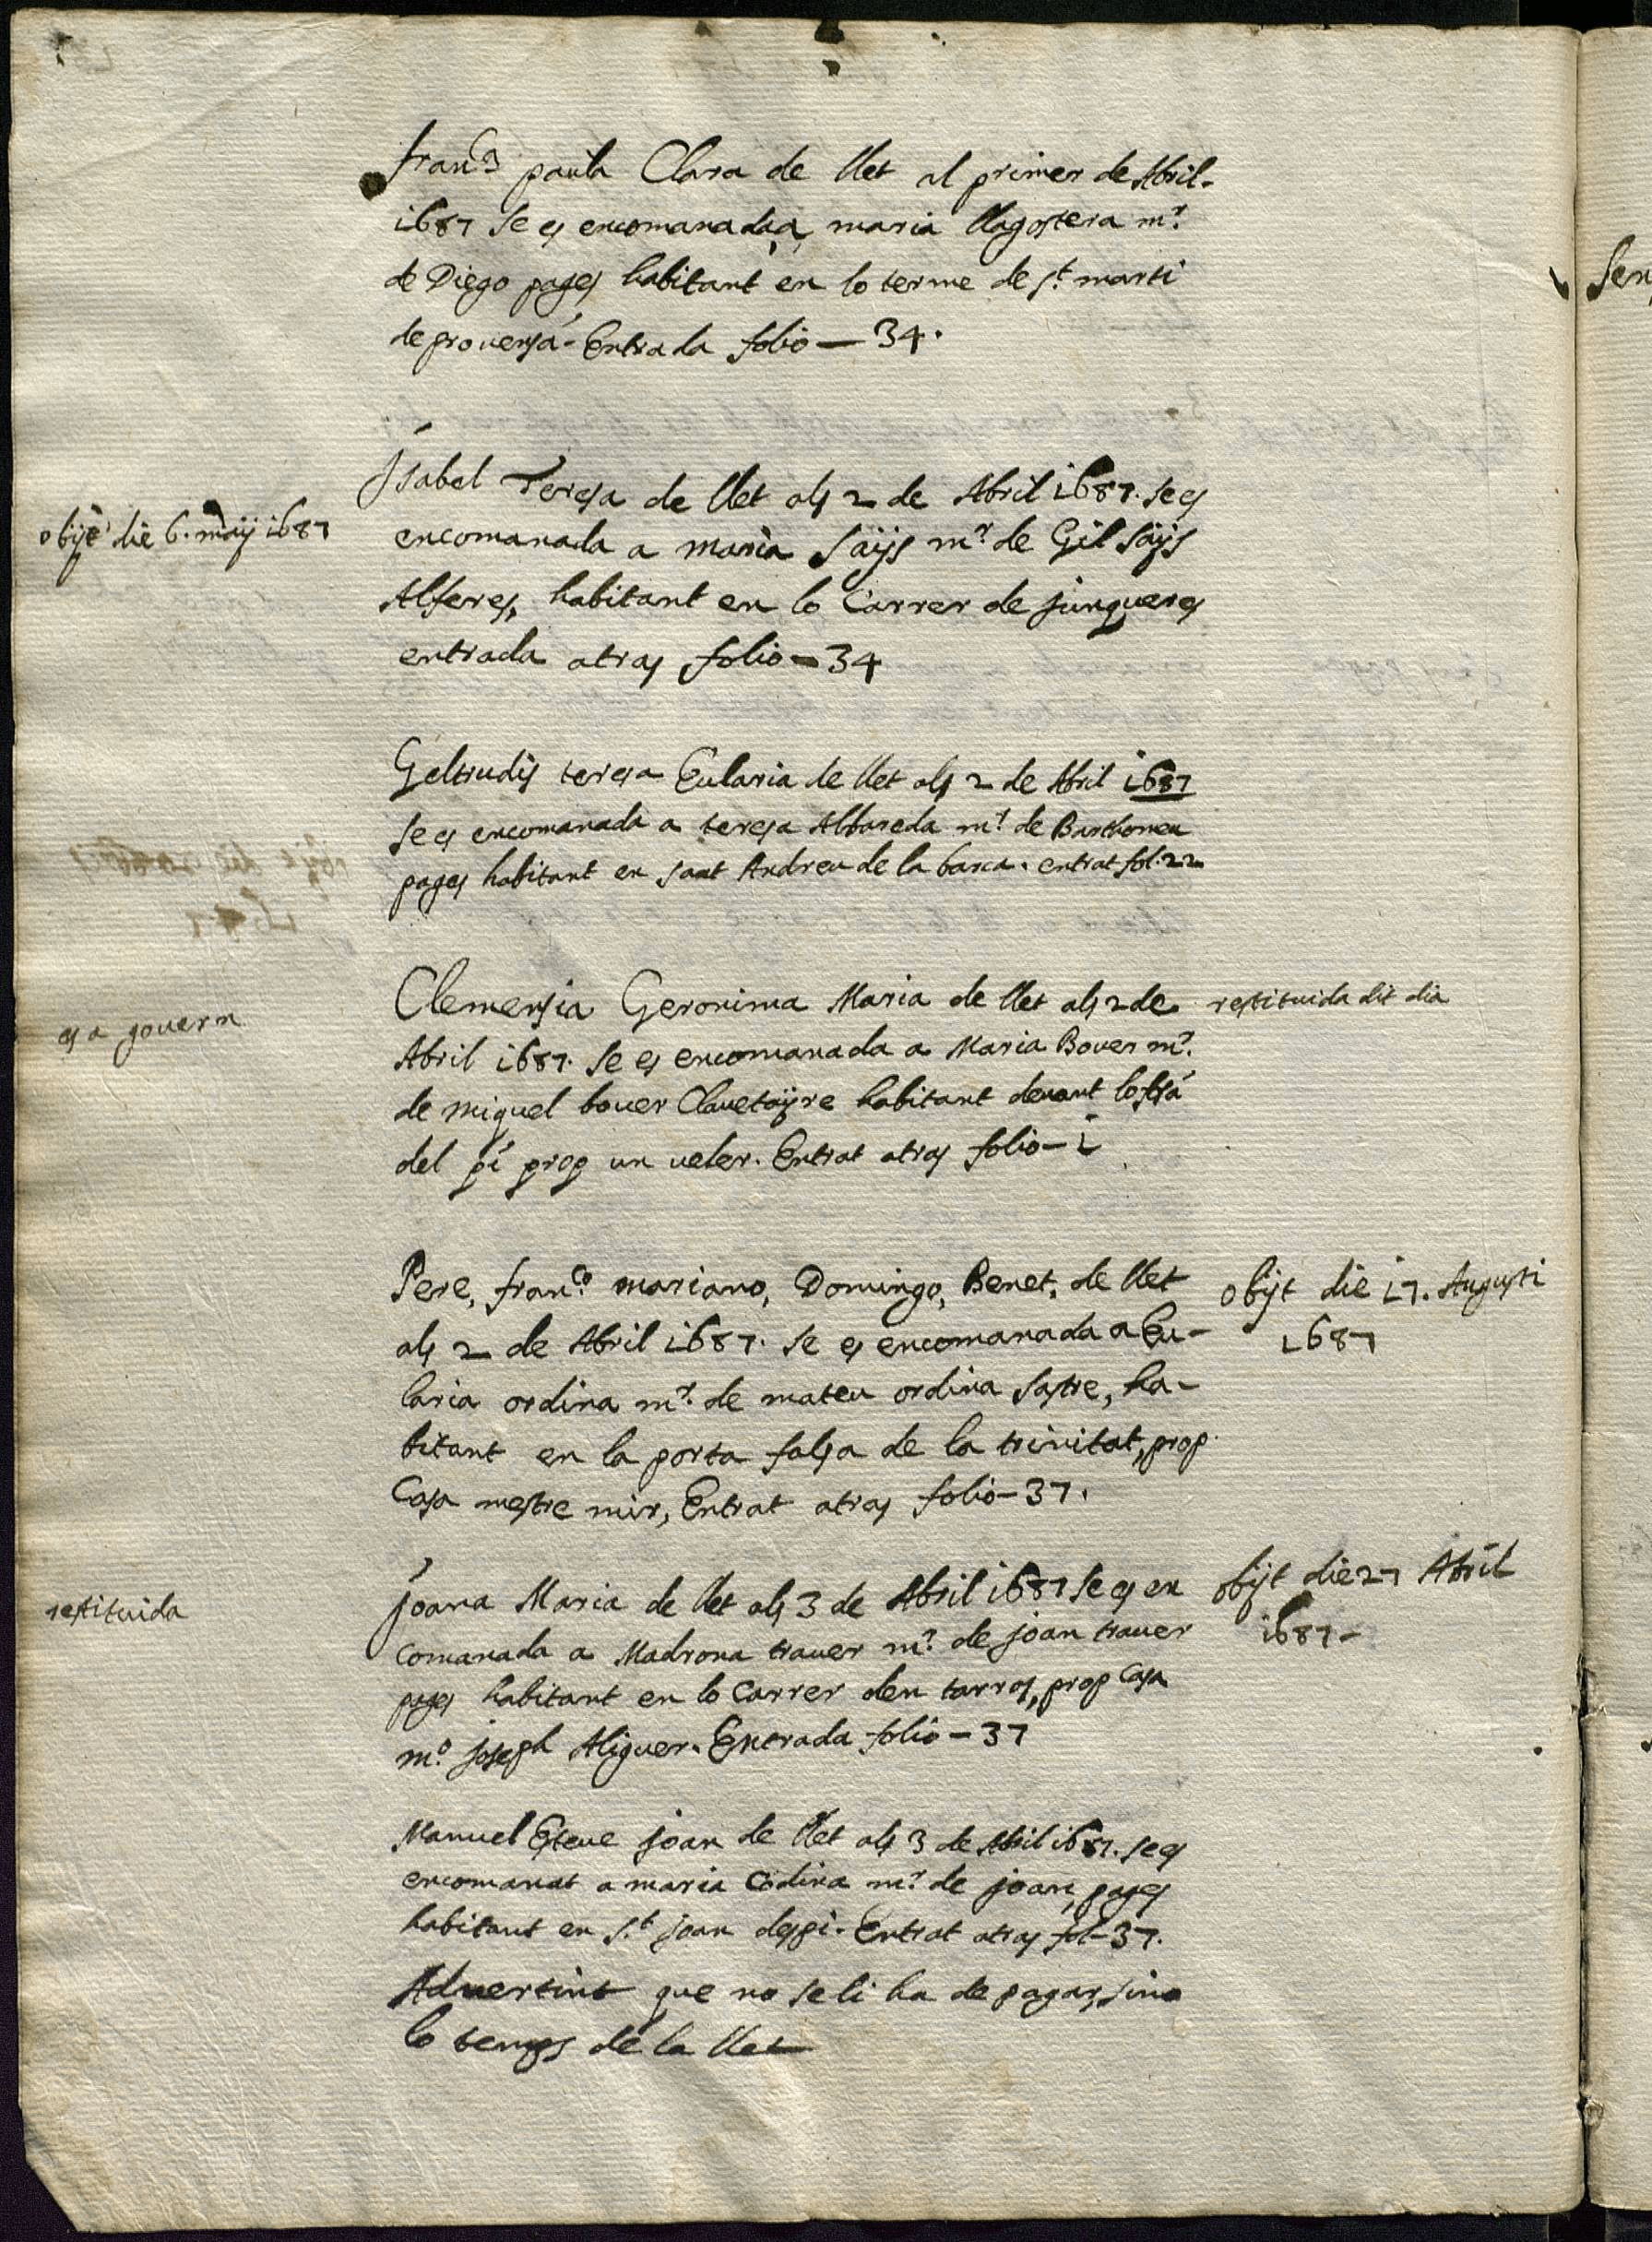 fran.ca paula Clara de llet al primer de Abril-
1687 se es encomanada a maria llagostera m.r
de Diego pages habitant en lo terme de s.t marti
de prouensa- Entrada folio — 34.
Jsabel Teresa de llet als 2 de Abril 1687. se es
obijt die 6. maij 1687
encomanada a maria saijs m.r de Gil saijs
Alferes, habitant en lo Carrer de junqueres
entrada atras folio - 34
Geltrudis teresa Eularia de llet als 2 de Abril 1687
se es encomanada a teresa Albareda m.r de Barthomeu
pages habitant en sant Andreu de la barca. entrat fol. 22
Clemensia Geronima Maria de llet als 2 de
restituida dit dia
es a gouern
Abril 1687. se es encomanada a Maria Bouer m.r
de miquel bouer Clauetayre habitant deuant
del pi prop un ueler. Entrat atras folio - 1
Pere, fran.co mariano, Domingo, Benet, de llet
obijt die 17. Augusti
1687
als 2 de Abril 1687. se es encomanada a Eu-
laria ordina m.r de mateu ordina sastre, ha-
bitant en la porta falsa de la trinitat, prop
Casa mestre mir, Entrat atras folio - 37.
Joana Maria de llet als 3 de Abril 1687 se es en
obijt die 27 Abril
1687 -
restituida
comanada a Madrona trauer m.r de joan trauer
pages habitant en lo Carrer den tarros, prop Casa
m.o joseph Aliguer. Entrada folio - 37
Manuel Esteue joan de llet als 3 de Abril 1687. se es
encomanat a maria Codina m.r de joan, pages
habitant en s.t joan despi. Entrat atras fol - 37.
Aduertint que no se li ha de pagar, sino
lo temps de la llet